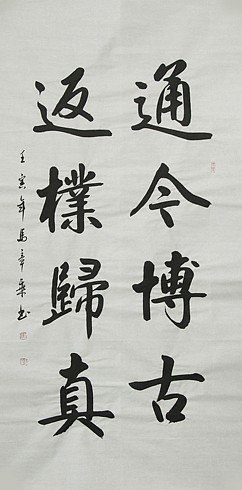 通今博古
返樸歸真
壬寅年馬章乘書